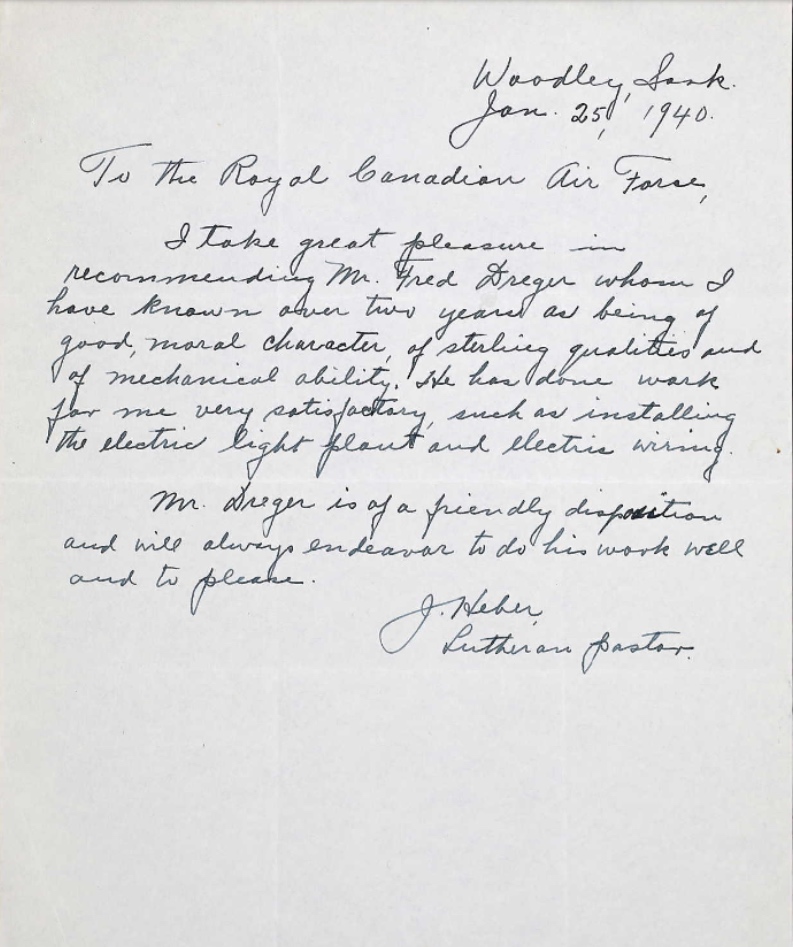 Woodley, Sask.
Jan. 25, 1940.
To the Royal Canadian Air Force,
I take great pleasure in
recommending Mr. Fred Dreger whom I
have known over two years as being of
good, moral character, of sterling qualities and
of mechanical ability. He has done work
for me very satisfactory, such as installing
the electric light plant and electric wiring.
Mr. Dreger is of a friendly disposition
and will always endeavor to do his work well
and to please.
J. Heber,
Lutheran pastor.